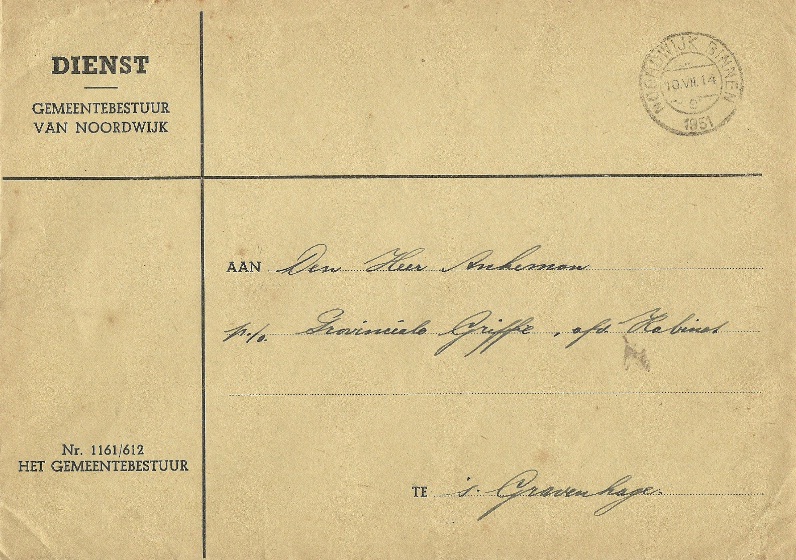 DIENST
GEMEENTEBESTUUR
VAN NOORDWIJK
NOORDWIJK BINNEN
10.VII.14
1951
AAN Den Heer Ankemon
p/a. Provinciale Griffie, afd. Kabinet
Nr. 1161/612
HET GEMEENTEBESTUUR
TE 's. Gravenhage.